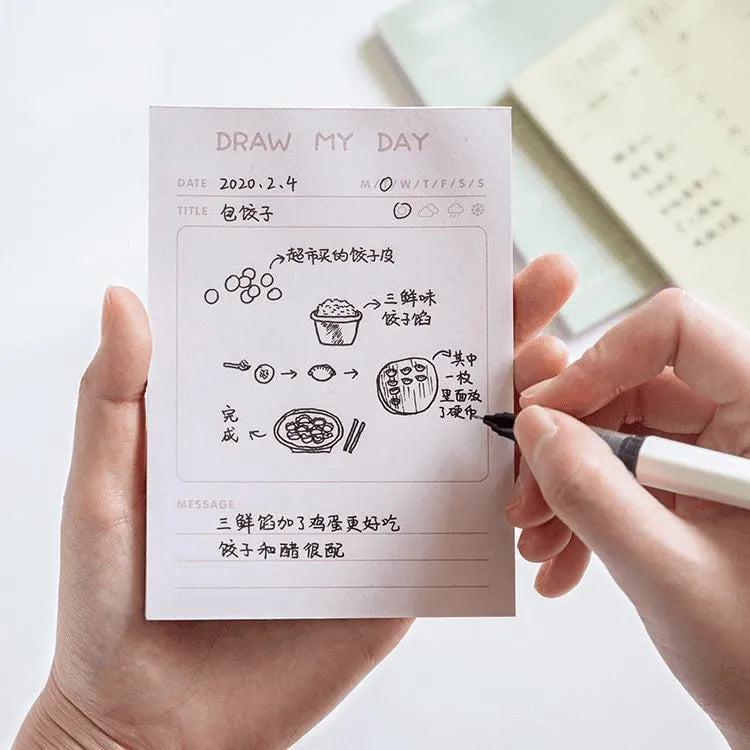 DRAW MY DAY
DATE: 2020.2.4 M/T/W/T/F/S/S
TITLE: 包饺子
超市买的饺子皮
三鲜味
饺子馅
其中
一枚
里面放
了硬币
完
成
MESSAGE
三鲜馅加了鸡蛋更好吃
饺子和醋很配